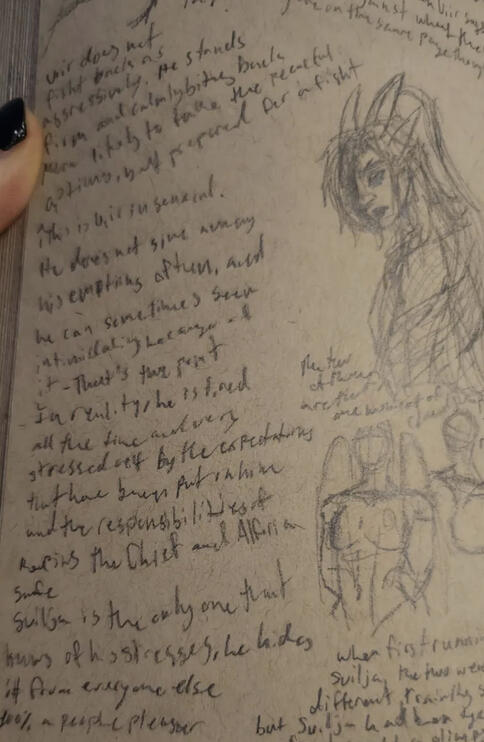 against what the
on the same page though
Vir does not
fight back as
aggressively. He stands
firm and calmly biting back
More likely to take the peaceful
actions, but prepared for a fight
This is Vir in general.
He does not give away
his emptions often, and
he can sometimes seem
intimidating because of
it - That's the point
- In reality, he is tired
all the time and very
stressed out by the expectations
that have been put on him
and the responsibilities of
keeping the Chief and
safe
Suilja is the only one that
knows of his stresses, he hides
it from everyone else
100% a people pleaser
The two
of them
are the
one moment of
when first runnin
Suilja, the two were
different,
but Suilja had